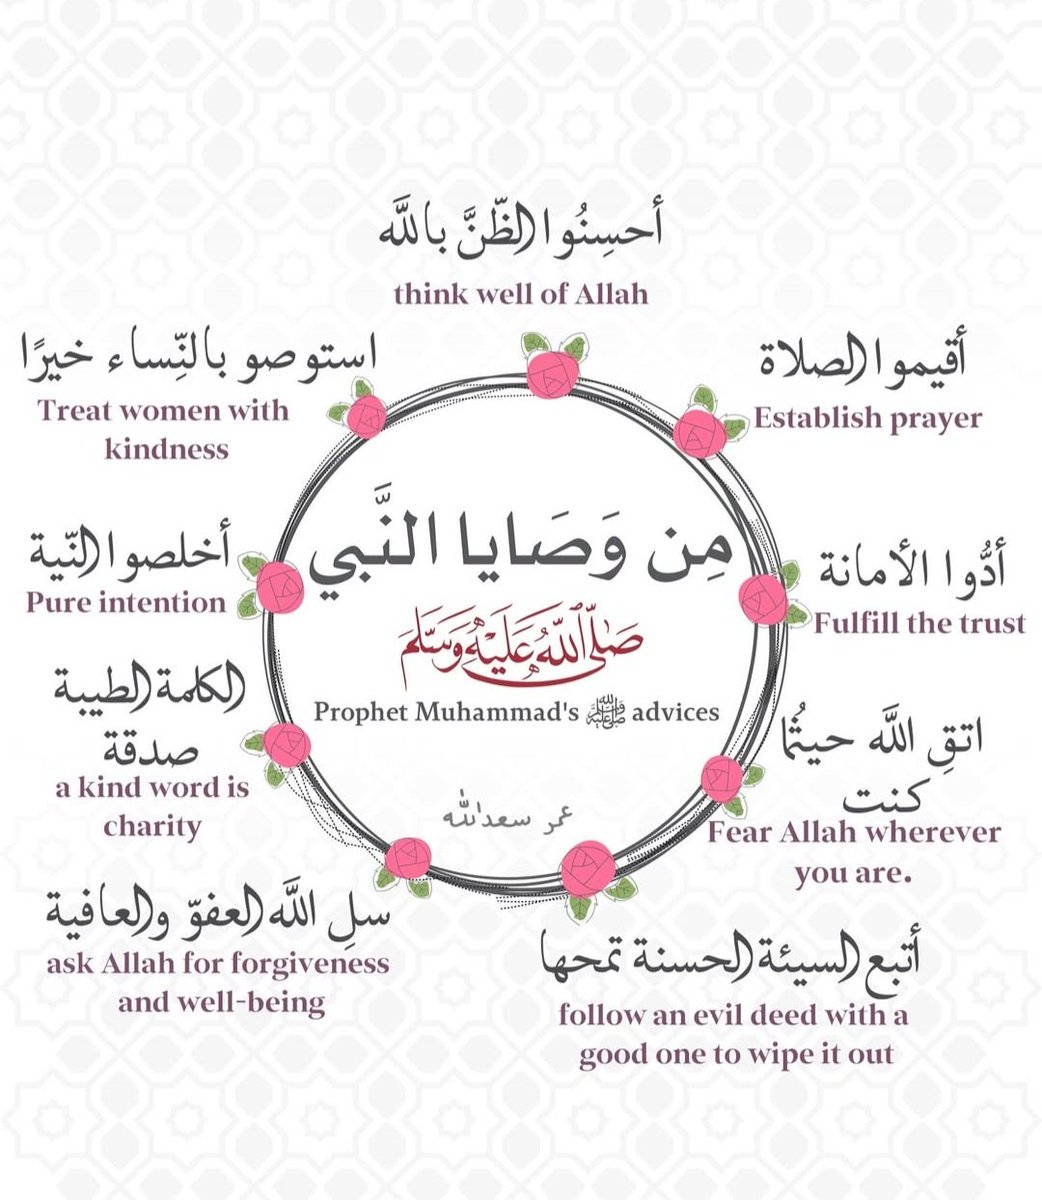 أحسِنُوا الظّنَّ بالله
think well of Allah
أقيموا الصلاة
Establish prayer
استوصو بالنِّساء خيرًا
Treat women with
kindness
مِن وَصَايا النَّبي
صَلّى اللهُ عَلَيْهِ وَسَلَّمَ
Prophet Muhammad's ﷺ advices
عمر سعدالله
أدُّوا الأمانة
Fulfill the trust
أخلصوا النّية
Pure intention
اتقِ اللَّه حيثُما
كنت
Fear Allah wherever
you are.
الكلمة الطيبة
صدقة
a kind word is
charity
أتبع السيئة الحسنة تمحها
follow an evil deed with a
good one to wipe it out
سلِ اللَّه العفوّ والعافية
ask Allah for forgiveness
and well-being